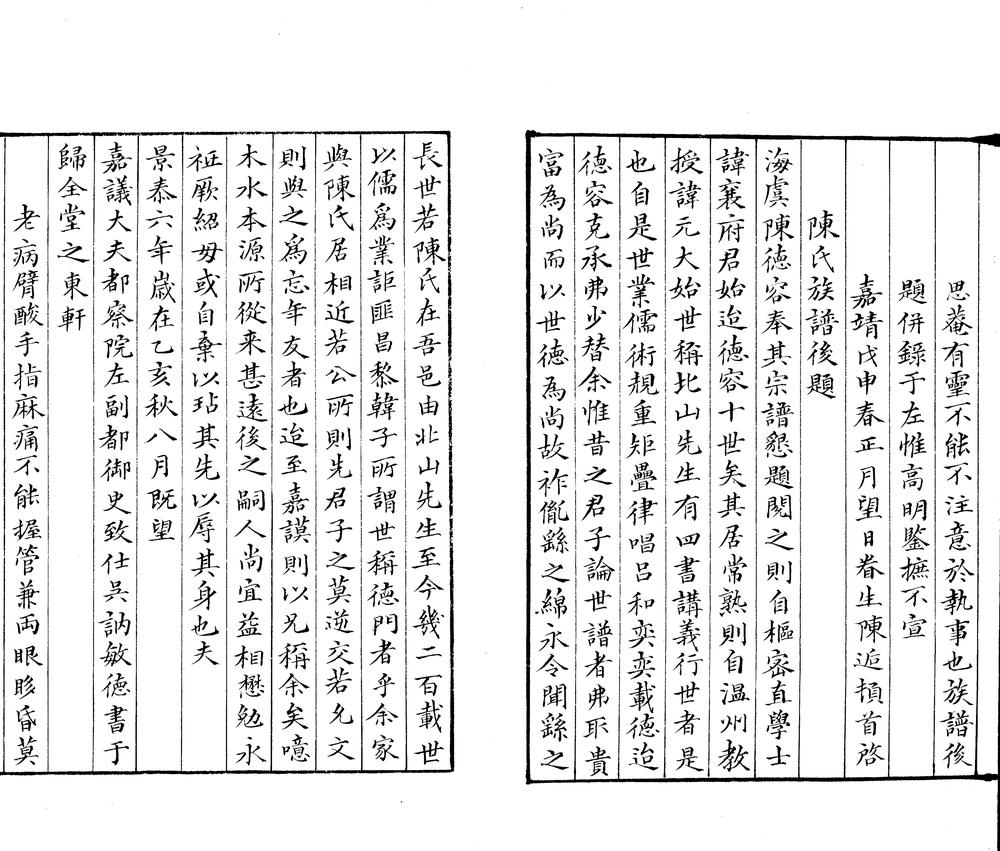 思菴有靈不能不注意於執事也族譜後
題併錄于左惟高明鑒摭不宣
嘉靖戊申春正月望日眷生陳逅頓首啓
陳氏族譜後題
海虞陳德容奉其宗譜懇題閱之則自樞密直學士
諱襄府君始迨德容十世矣其居常熟則自溫州教
授諱元大始世稱北山先生有四書講義行世者是
也自是世業儒術規重矩疊律唱呂和奕奕載德迨
德容克承弗少替余惟昔之君子論世譜者弗取貴
富為尚而以世德為尚故祚胤繇之綿永令聞繇之
長世若陳氏在吾邑由北山先生至今幾二百載世
以儒爲業詎匪昌黎韓子所謂世稱德門者乎余家
與陳氏居相近若公所則先君子之莫逆交若允文
則與之爲忘年友者也迨至嘉謨則以兄稱余矣噫
木水本源所從来甚遠後之嗣人尚宜益相懋勉永
祗厥紹毋或自棄以玷其先以辱其身也夫
景泰六年歲在乙亥秋八月既望
嘉議大夫都察院左副都御史致仕吳訥敏德書于
歸全堂之東軒
老病臂酸手指麻痛不能握管兼两眼眵昏莫